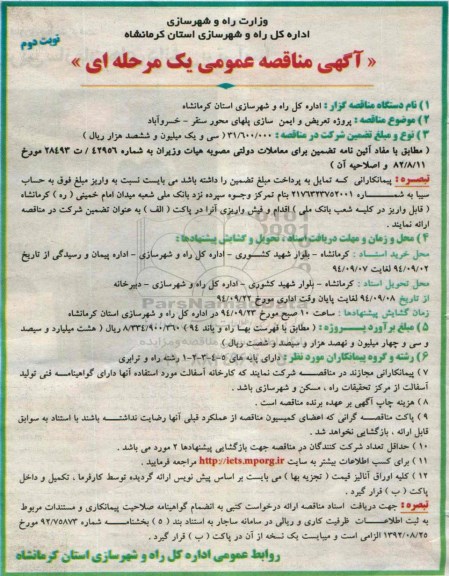 وزارت راه و شهرسازی
اداره کل راه و شهرسازی استان کرمانشاه
نوبت دوم
« آگهی مناقصه عمومی یک مرحله ای »
۱) نام دستگاه مناقصه گزار : اداره کل راه و شهرسازی استان کرمانشاه
۲) موضوع مناقصه : پروژه تعریض و ایمن سازی پلهای محور سنقر - خسروآباد
۳) نوع و مبلغ تضمین شرکت در مناقصه : ۳۱/۶۰۰/۰۰۰ ( سی و یک میلیون و ششصد هزار ریال )
( مطابق با مفاد آئین نامه تضمین برای معاملات دولتی مصوبه هیات وزیران به شماره ۴۲۹۵۶ / ت ۲۸۴۹۳ مورخ
۸۲/۸/۱۱ و اصلاحیه آن )
تبصره : پیمانکارانی که تمایل به پرداخت مبلغ تضمین را داشته باشد می بایست نسبت به واریز مبلغ فوق به حساب
سیبا به شماره ۲۱۷۶۴۴۳۷۵۲۰۰۱ بنام تمرکز وجوه سپرده نزد بانک ملی شعبه میدان امام خمینی ( ره ) کرمانشاه
( قابل واریز در کلیه شعب بانک ملی ) اقدام و فیش واریزی آنرا در پاکت ( الف ) به عنوان تضمین شرکت در مناقصه
ارائه نمایند .
۴ ) محل و زمان و مهلت دریافت اسناد ، تحویل و گشایش پیشنهادها :
محل خرید اسناد : کرمانشاه - بلوار شهید کشوری - اداره کل راه و شهرسازی - اداره پیمان و رسیدگی از تاریخ
۹۴/۰۹/۰۲ لغایت ۹۴/۰۹/۰۷
محل تحویل اسناد : کرمانشاه - بلوار شهید کشوری - اداره کل راه و شهرسازی - دبیرخانه
از تاریخ ۹۴/۰۹/۰۸ لغایت پایان وقت اداری مورخ ۹۴/۰۹/۲۲
زمان گشایش پیشنهادها : ساعت ۱۰ صبح مورخ ۹۴/۰۹/۲۳ در اداره کل راه و شهرسازی استان کرمانشاه
۵) مبلغ برآورد پروژه : ( مطابق با فهرست بها راه و باند ۹۴ ) ۸/۳۳۴/۹۰۰/۳۶۰ ریال ( هشت میلیارد و سیصد
و سی و چهار میلیون و نهصد هزار و سیصد و شصت ریال )
۶) رشته و گروه پیمانکاران مورد نظر : دارای پایه های ۵-۴-۳-۲-۱ رشته راه و ترابری
۷ ) پیمانکارانی مجازند در مناقصه شرکت نمایند که کارخانه آسفالت مورد استفاده آنها دارای گواهینامه فنی تولید
آسفالت از مرکز تحقیقات راه ، مسکن و شهرسازی باشد .
۸ ) هزینه چاپ آگهی بر عهده برنده مناقصه است .
۹ ) پاکت مناقصه گرانی که اعضای کمیسیون مناقصه از عملکرد قبلی آنها رضایت نداشته باشند با استناد به سوابق
قابل ارائه ، بازگشایی نخواهد شد .
۱۰ ) حداقل تعداد شرکت کنندگان در مناقصه جهت بازگشایی پیشنهادها ۲ مورد می باشد .
۱۱ ) برای کسب اطلاعات بیشتر به سایت http://iets.mporg.ir مراجعه فرمایید .
۱۲ ) کلیه اوراق آنالیز قیمت ( تجزیه بها ) می بایست بر اساس پیش نویس ارائه گردیده توسط کارفرما ، تکمیل و داخل
پاکت ( ب ) قرار گیرد .
تبصره : جهت دریافت اسناد مناقصه ارائه درخواست کتبی به انضمام گواهینامه صلاحیت پیمانکاری و مستندات مربوط
به ثبت اطلاعات ظرفیت کاری و ریالی در سامانه ساجار به استناد بند ( ۵ ) بخشنامه شماره ۹۲/۷۵۸۷۳ مورخ
۱۳۹۲/۰۸/۲۵ الزامی است و میبایست یک نسخه از آن در پاکت ( ب ) قرار گیرد .
روابط عمومی اداره کل راه و شهرسازی استان کرمانشاه